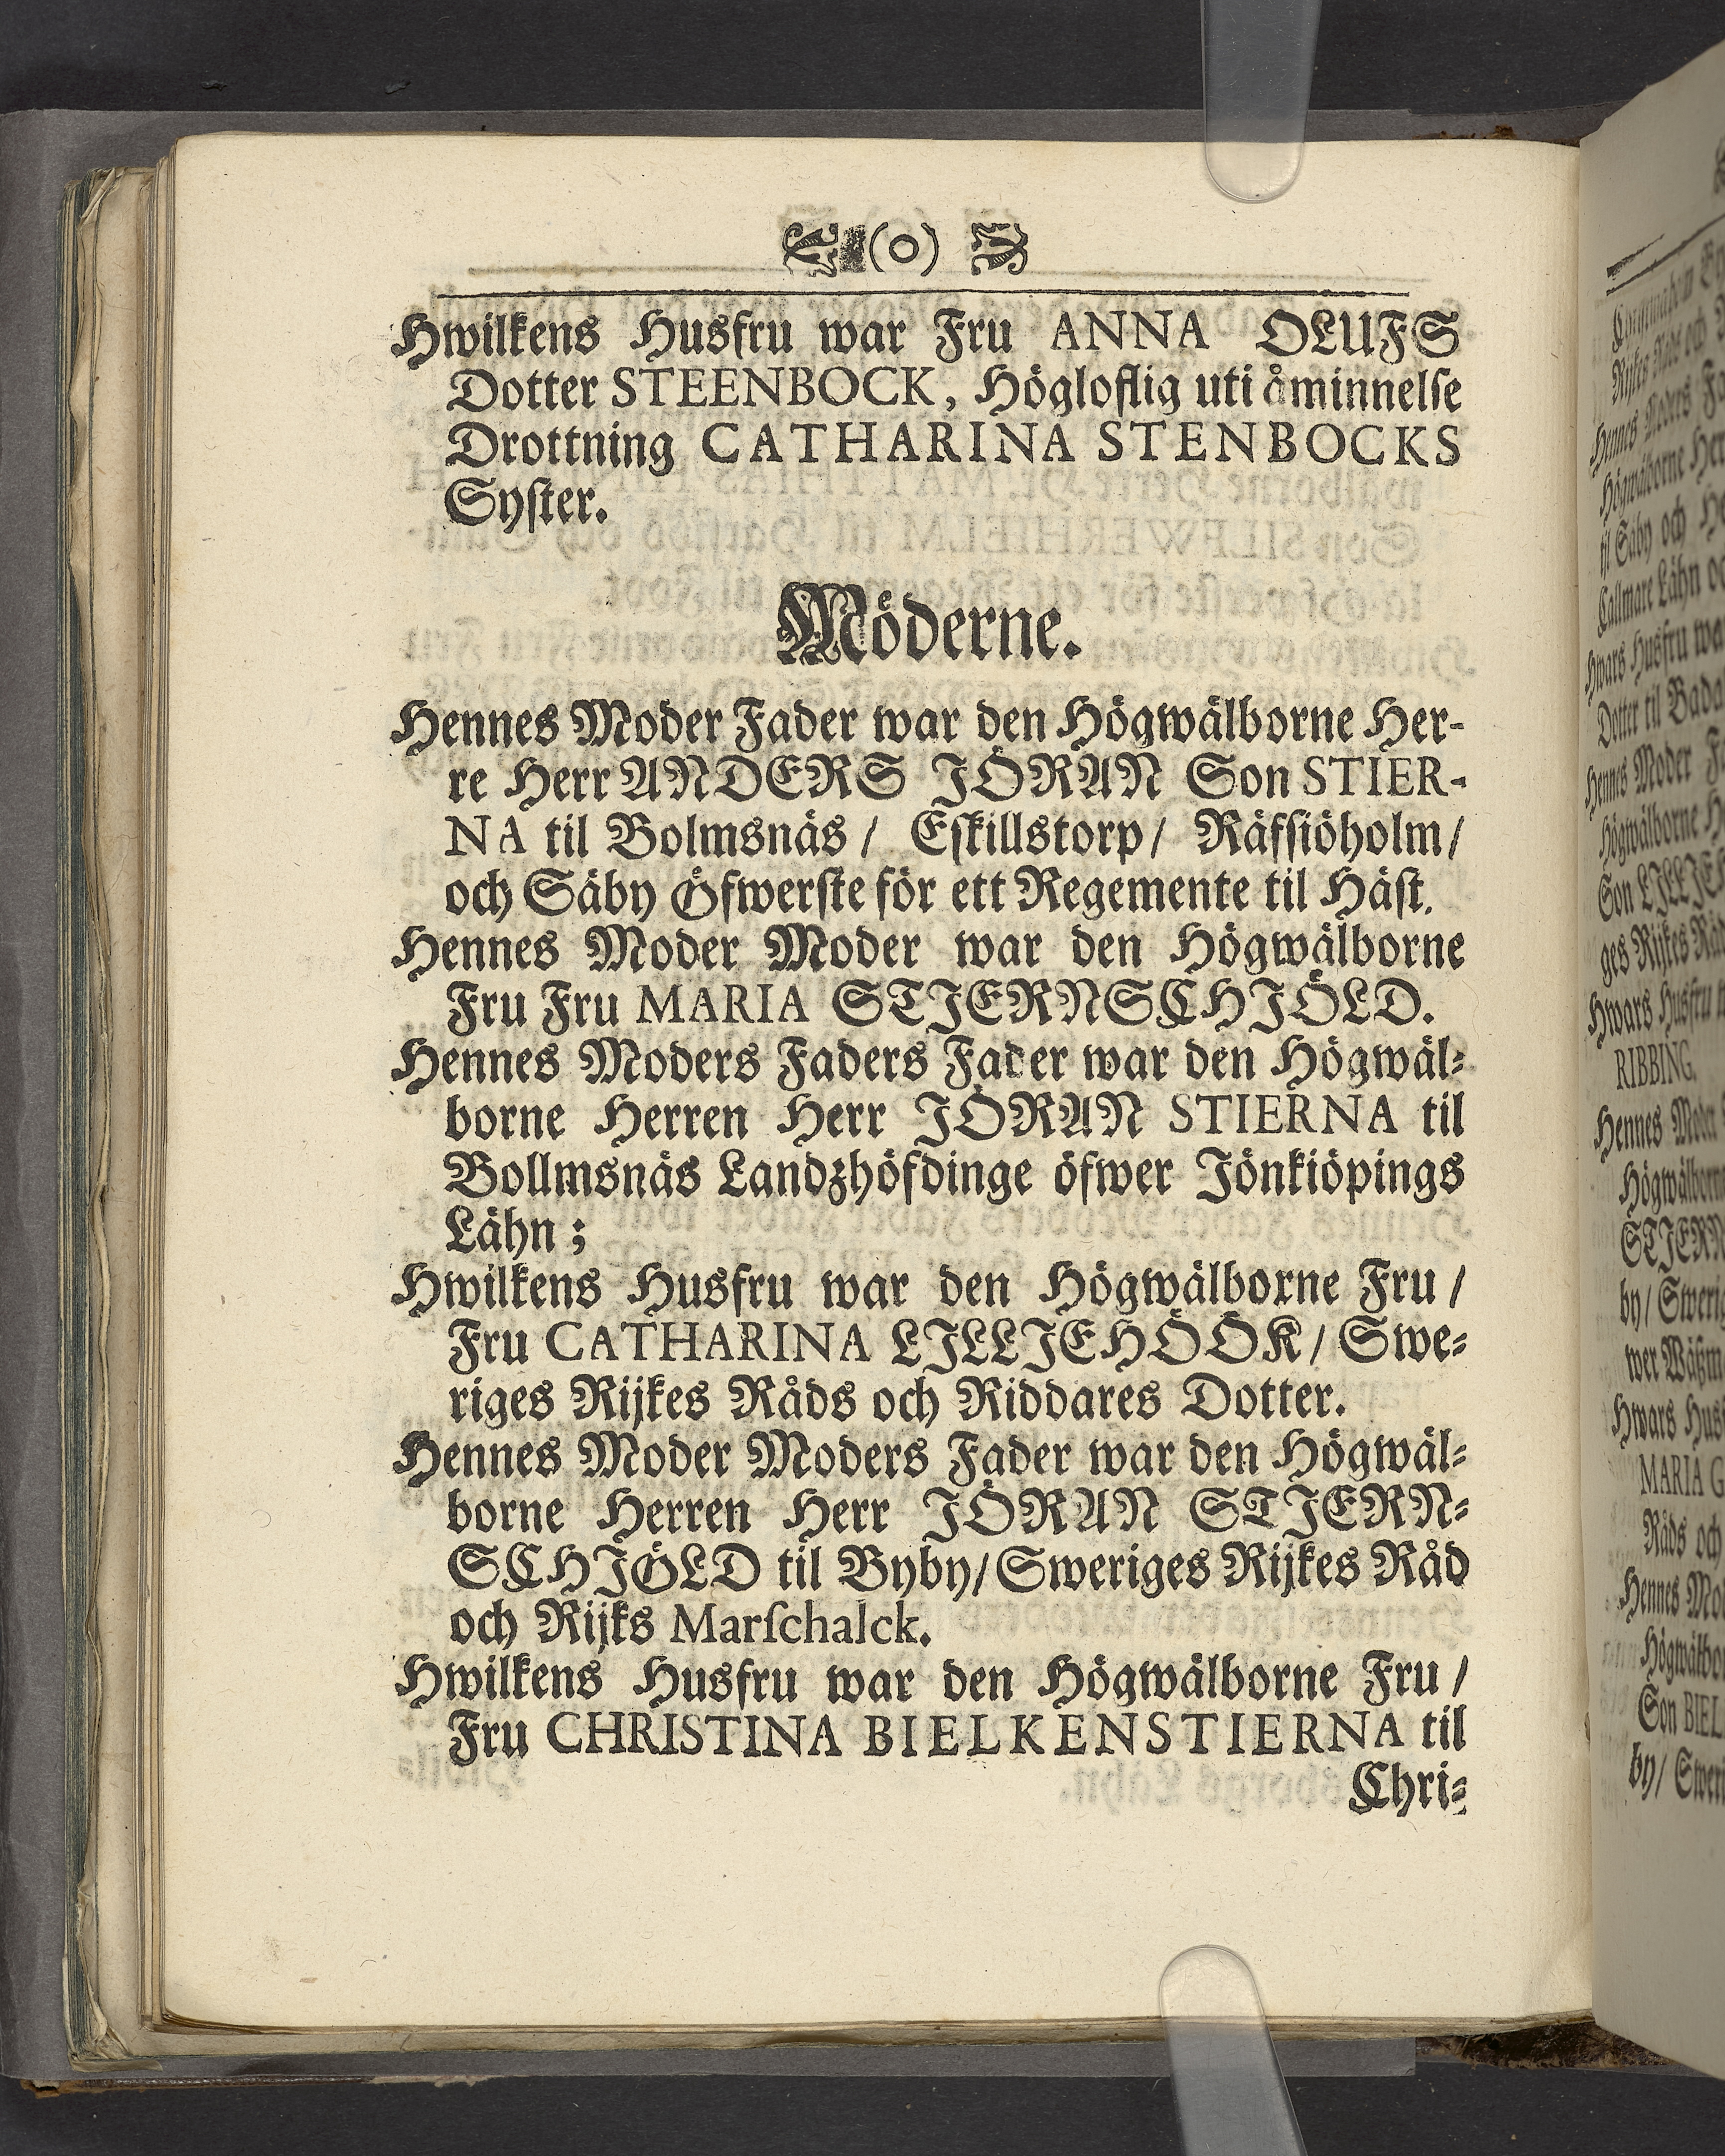 (0)
Hwilkens Husfru war Fru ANNA OLUFS
Dotter STEENBOCK, Högloflig uti åminnelse
Drottning CATHARINA STENBOCKS
Syster.
Möderne.
Hennes Moder Fader war den Högwälborne Her-
re Herr ANDERS JÖRAN Son STIER-
NA til Bolmsnäs / Eskillstorp / Räfsiöholm /
och Säby Öfwerste för ett Regemente til Häst.
Hennes Moder Moder war den Högwälborne
Fru Fru MARIA STJERNSCHJÖLD.
Hennes Moders Faders Fader war den Högwäl-
borne Herren Herr JÖRAN STIERNA til
Bollmsnäs Landzhöfdinge öfwer Jönkiöpings
Lähn ;
Hwilkens Husfru war den Högwälborne Fru /
Fru CATHARINA LJLLJEHÖÖK / Swe-
riges Rijkes Råds och Riddares Dotter.
Hennes Moder Moders Fader war den Högwäl-
borne Herren Herr JÖRAN STJERN-
SCHJÖLD til Byby / Sweriges Rijkes Råd
och Rijks Marschalck.
Hwilkens Husfru war den Högwälborne Fru /
Fru CHRISTINA BIELKENSTIERNA til
Chri-